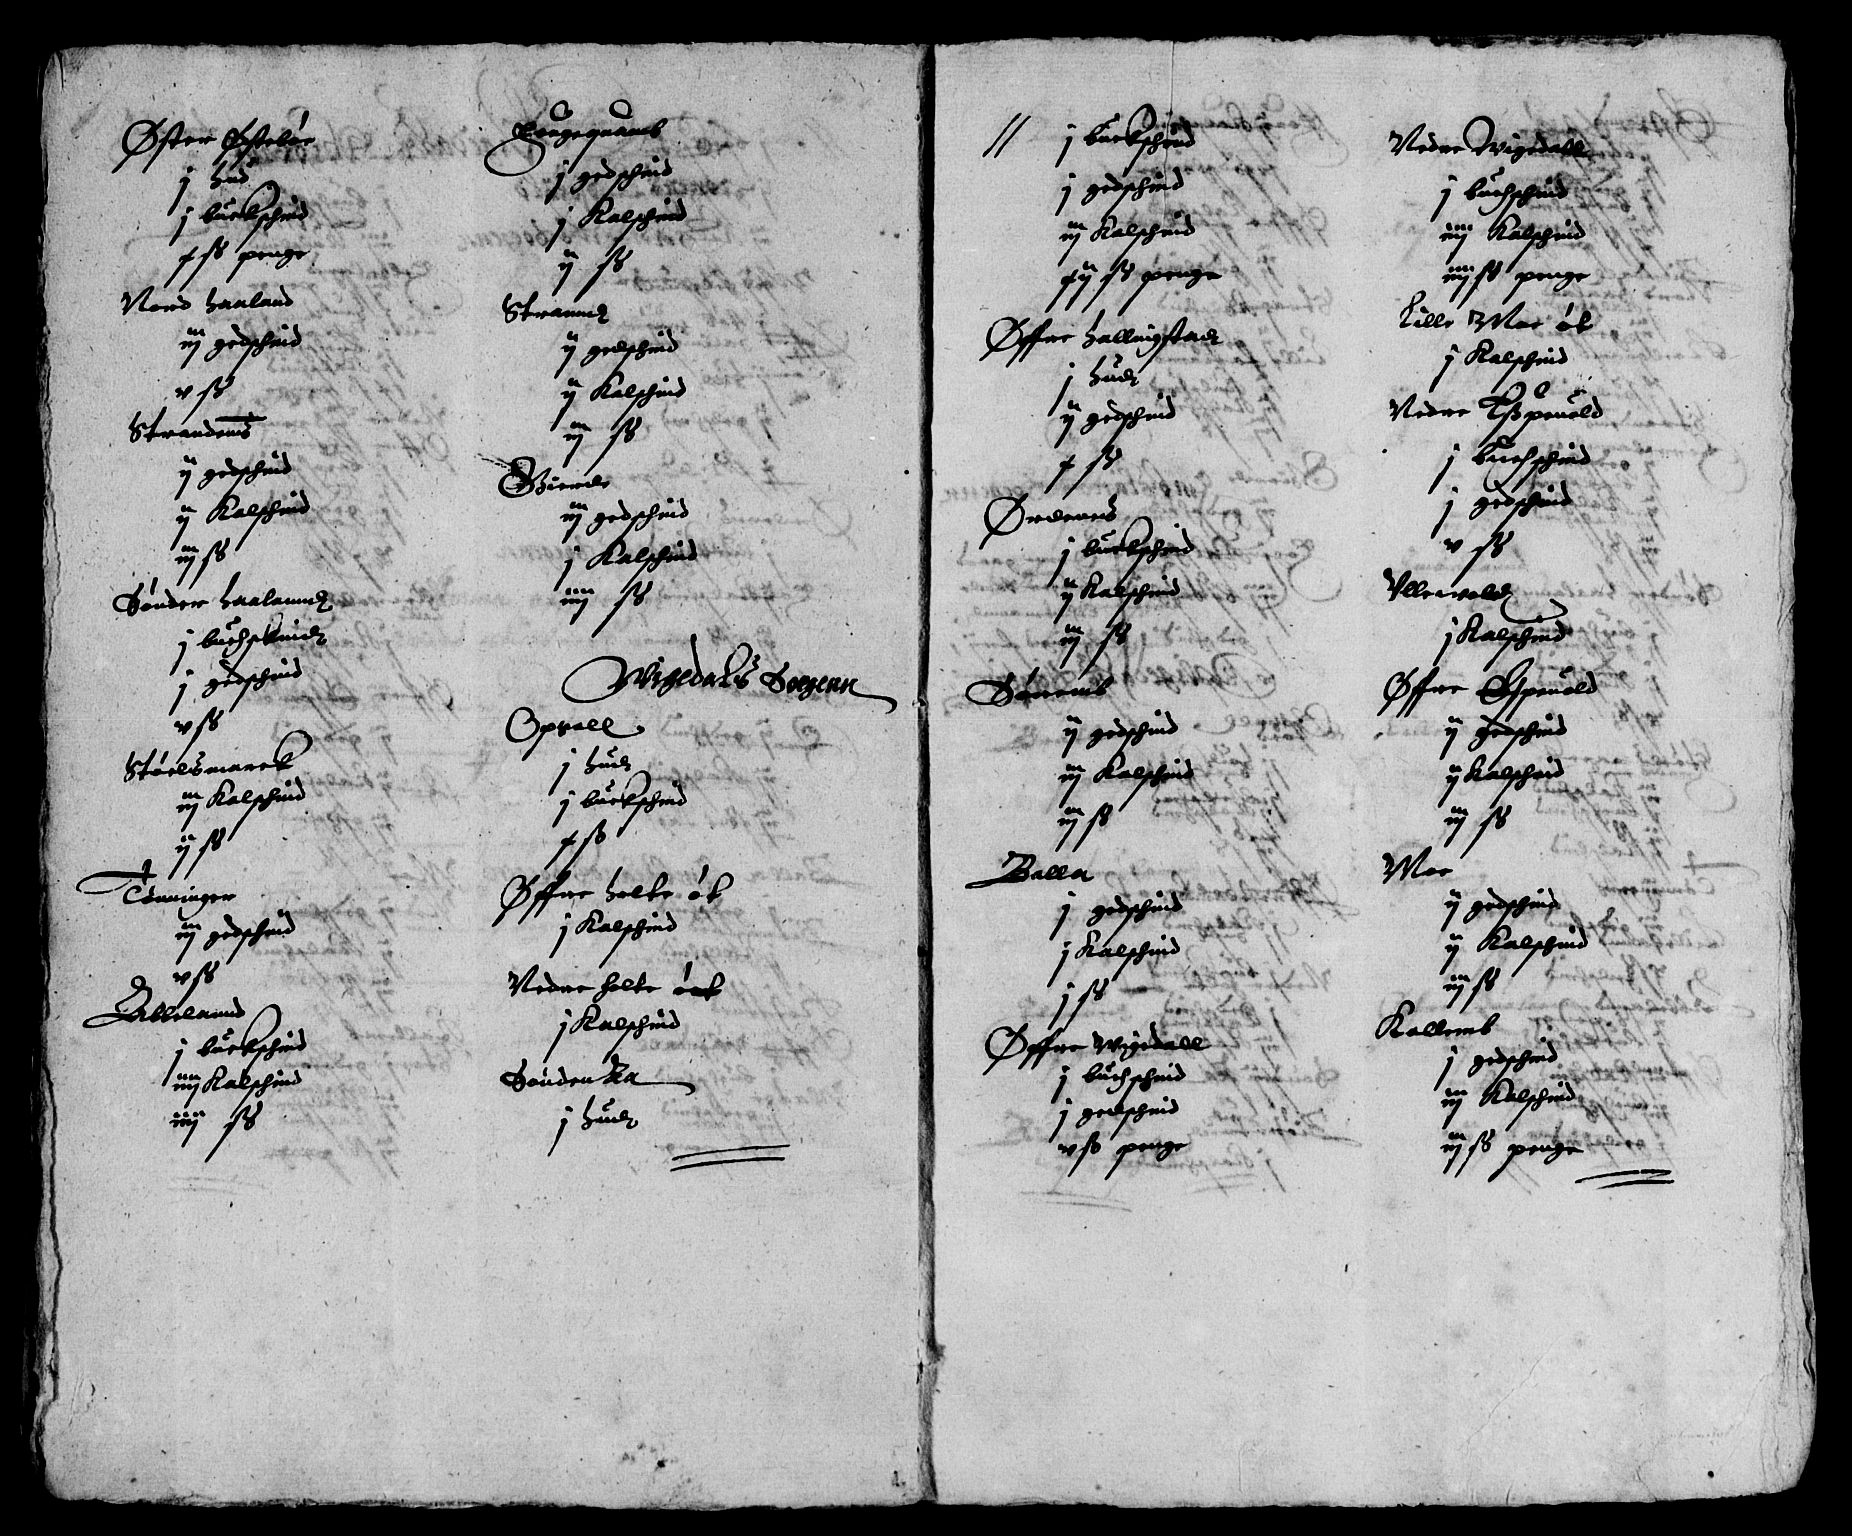 Øster Østebøe
j hud
j buckschind
x ss penge
Nord haaland
iij gedschind
v ss
Strandems
ij gedschind
ij Kalschind
iij ss
Sønder haalanndt
j buchskindt
j gedschind
v ss
Støelsmarck
iij Kalschind
ij ss
Tønninger
iij gedschind
v ss
Abbelannd
j buckschind
iiij Kalschind
iiij ss
j gedschind
j Kalschind
ij ss
Stranndt
ij gedschind
ij Kalschind
iij ss
iij gedschind
j Kalschind
iiij ss
Wigedals Sogenn
Opsall
j hudt
j buckschind
x ss
Øffre holte øb
j Kalschind
Nedre holte
j Kalschind
Sønden Aa
j hudt
// j buckschind
j gedschind
iij Kalschind
xij ss penge
Øffre hallingstadt
j hudt
ij gedschind
x ss
j buckschind
ij Kalschind
iij ss
ij gedschind
iij Kalschind
iij ss
Balla
j gedschind
j Kalschind
j ss
Øffre Wigedall
j buchschind
j gedschind
v ss penge
Nedre Wigedall
j buchschind
iiij Kalschind
iiij ss penge
Lille Moe øb
j Kalschind
Nedre Espeuold
j buchschind
j gedschind
v ss
Vlleruoldt
j Kalschind
Øffre Espeuold
ij gedschind
ij Kalschind
iij ss
Moe
ij gedschind
ij Kalschind
iij ss
Kallemb
j gedschind
iij Kalschind
iij ss penge